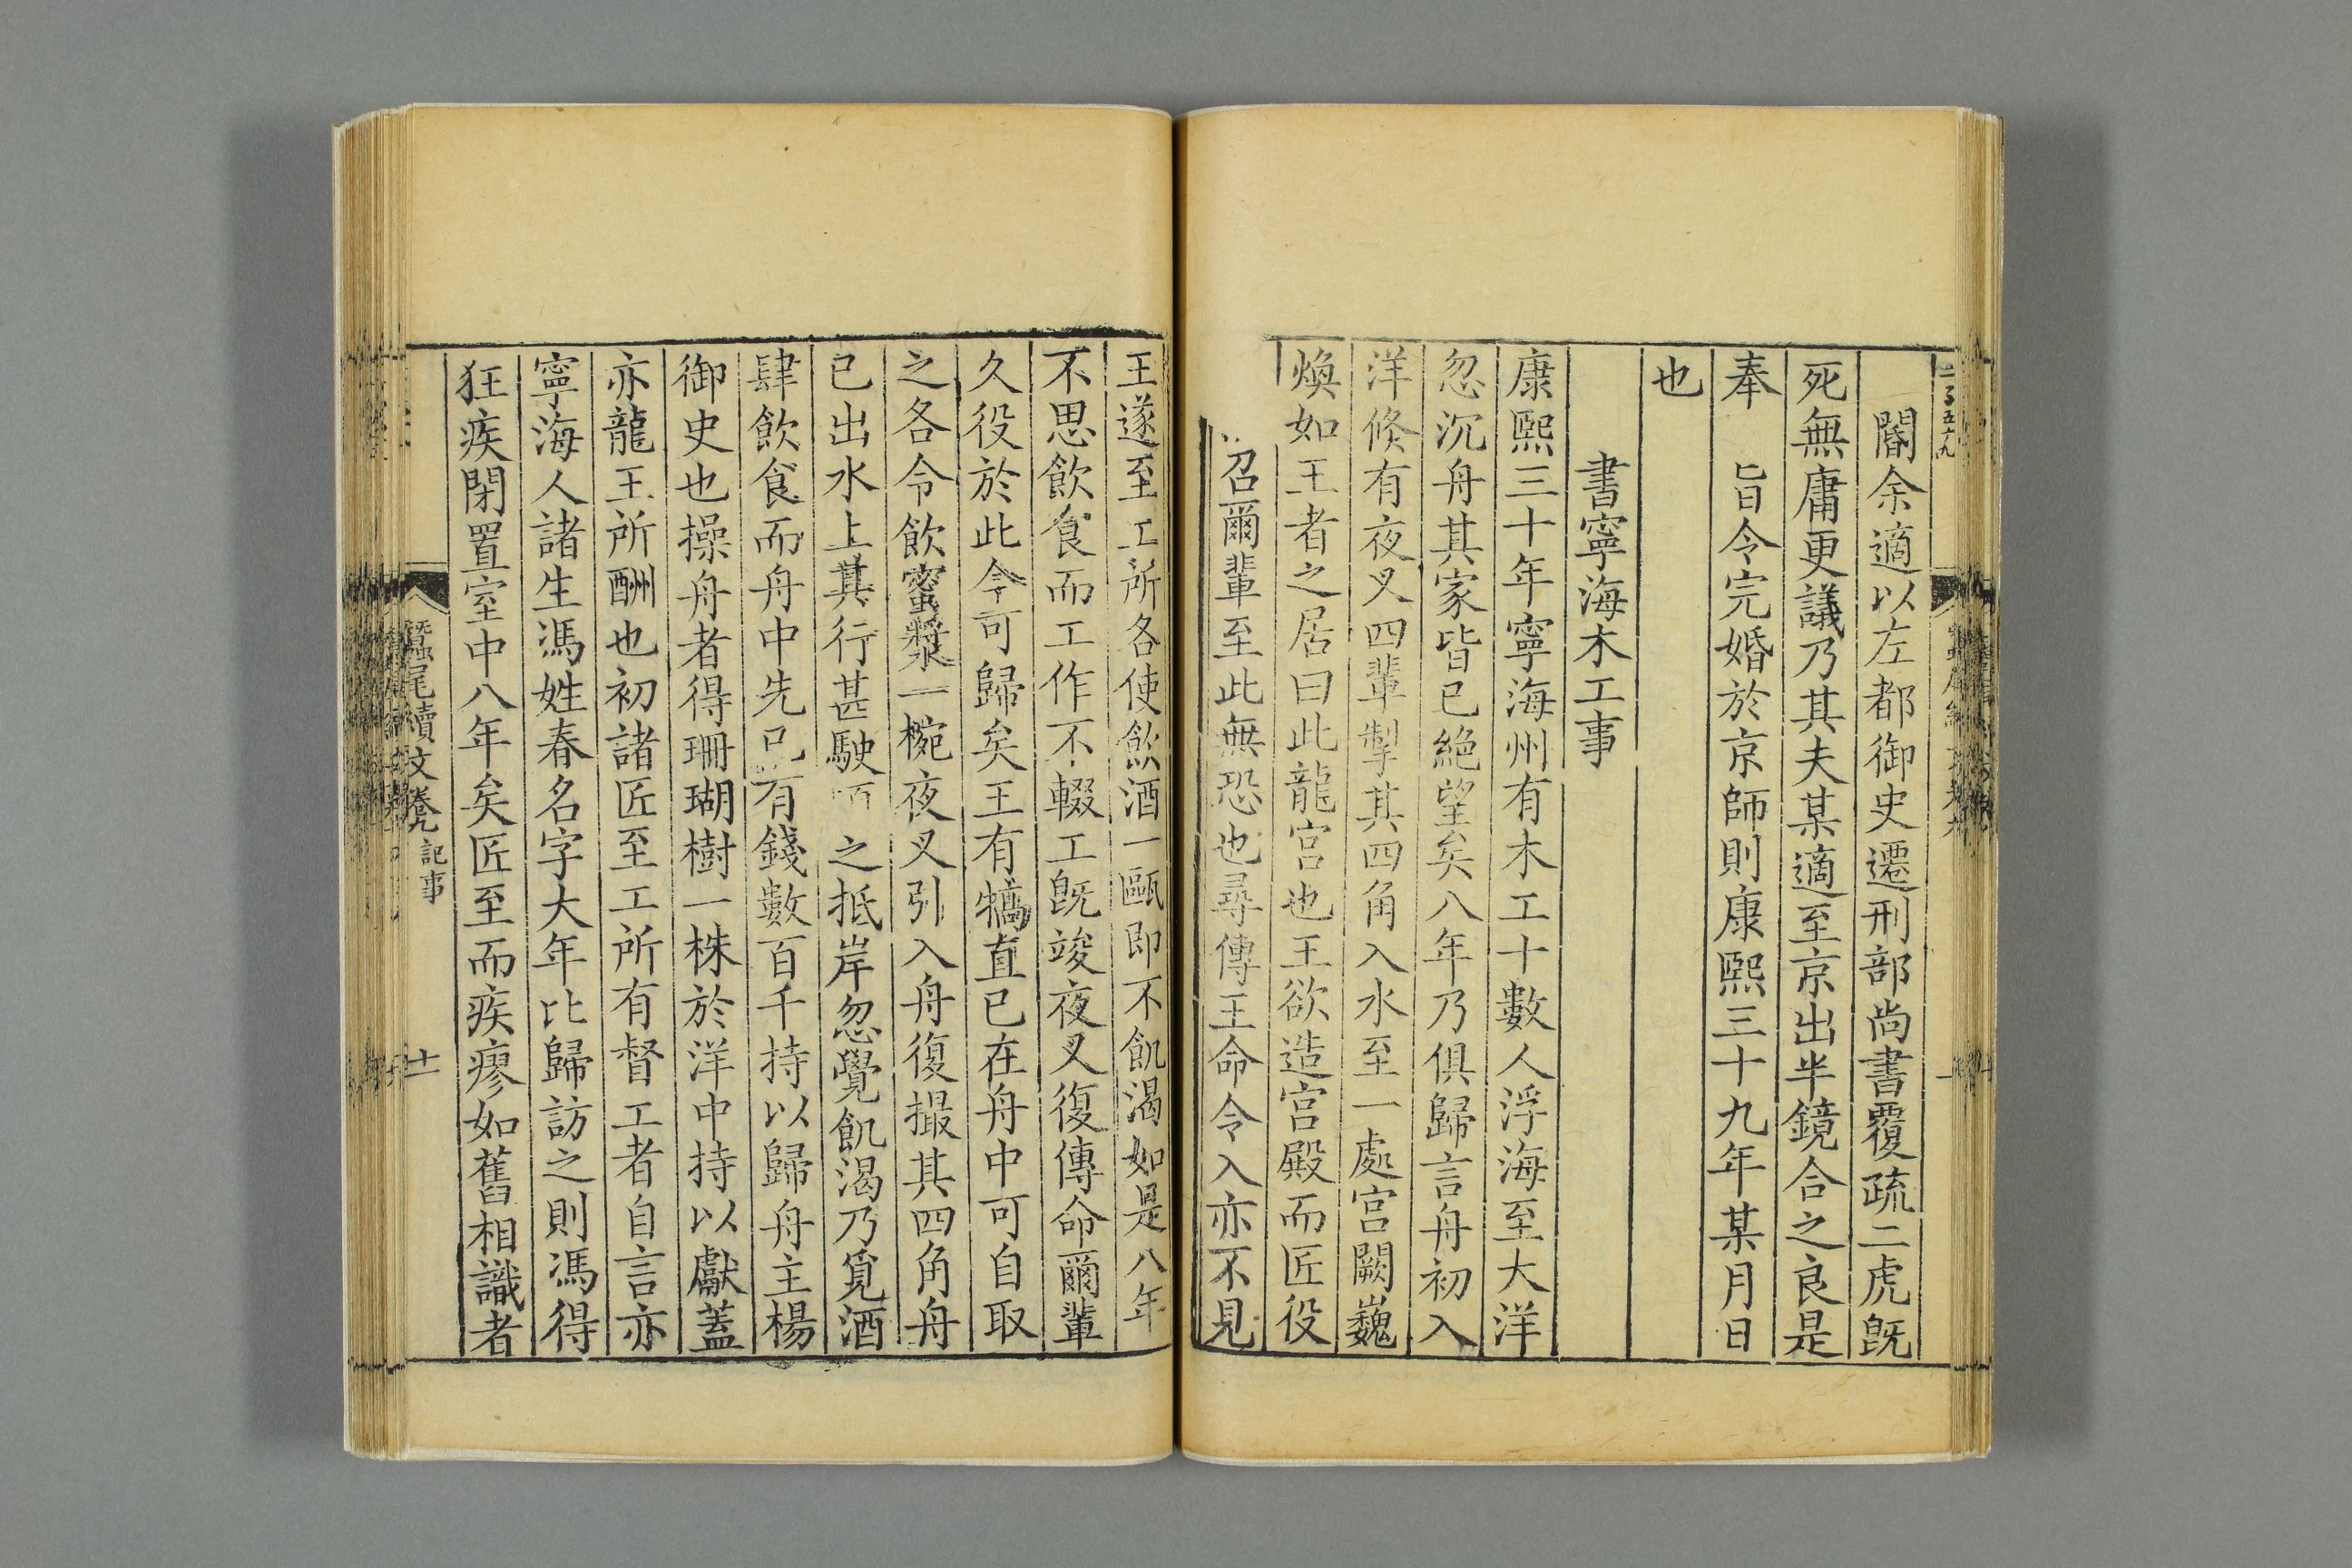 二百五十九
閽余適以左都御史遷刑部尚書覆疏二虎旣
死無庸更議乃其夫某適至京出半鏡合之良是
奉 旨令完婚於京師則康熙三十九年某月日
也
書寧海木工事
康熙三十年寧海州有木工十數人浮海至大洋
忽沉舟其家皆已絕望矣八年乃俱歸言舟初入
洋倐有夜叉四輩掣其四角入水至一處宮闕巍
煥如王者之居曰此龍宮也王欲造宮殿而匠役
召爾輩至此無恐也尋傳王命令入亦不見
王遂至工所各使飲酒一甌即不飢渴如是八年
不思飲食而工作不輟工旣竣夜叉復傳命爾輩
久役於此今可歸矣王有犒直已在舟中可自取
之各令飲蜜漿一椀夜叉引入舟復撮其四角舟
已出水上其行甚駛 之抵岸忽覺飢渴乃覓酒
肆飲食而舟中先已有錢數百千持以歸舟主楊
御史也操舟者得珊瑚樹一株於洋中持以獻蓋
亦龍王所酬也初諸匠至工所有督工者自言亦
寧海人諸生馮姓春名字大年比歸訪之則馮得
狂疾閉置室中八年矣匠至而疾瘳如舊相識者
蠶尾續文卷 記事
十一